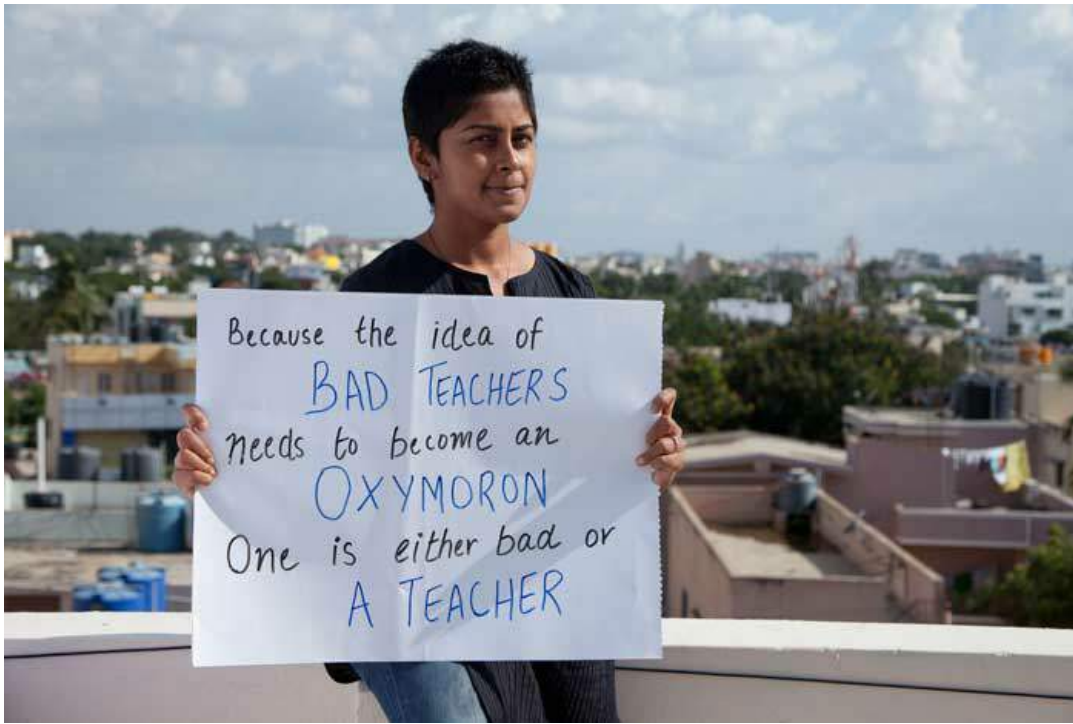 Because the idea of
BAD TEACHERS
needs to become an
OXYMORON
One is either bad or
A TEACHER